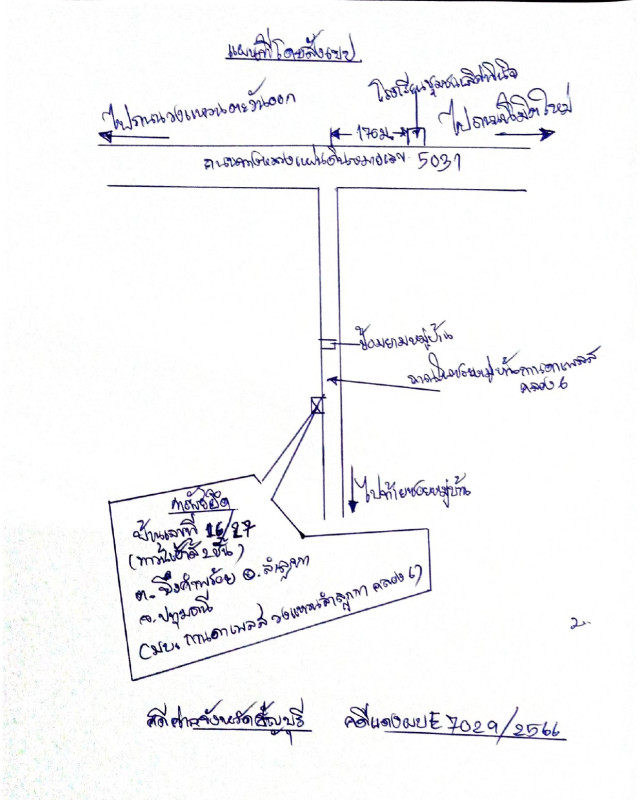 แผนที่โดยสังเขป
ไปถนนวงแหวนตะวันออก
โรงเรียนชุมชนเลิศพินิจ
ไปถนนนิมิตใหม่
176ม.
ถนนทางหลวงแผ่นดินหมายเลข 5031
ป้อมยามหมู่บ้าน
ถนนในซอยหมู่บ้านกานดาเพลส
คลอง 6
ไปท้ายซอยหมู่บ้าน
ทรัพย์ยึด
บ้านเลขที่ 16/27
(ทาวน์เฮ้าส์ 2 ชั้น)
ต. บึงคำพร้อย อ. ลำลูกกา
จ. ปทุมธานี
(มบ. กานดาเพลส วงแหวนลำลูกกา คลอง 6)
2.
คดีศาลจังหวัดธัญบุรี คดีแดงผบE 7029/2566